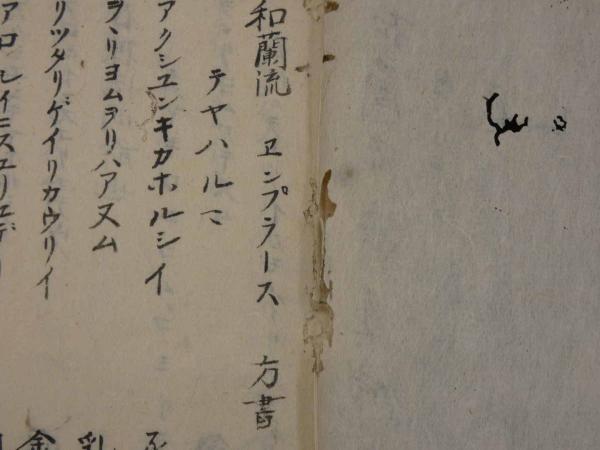 和蘭流 ヱンプラース 方書
テヤハルマ
アクシユンキカホルシイ
ヲヽリヨムヲリハアヌム
リツタリゲイリカウリイ
アロエイニスユリエデ
乳
金